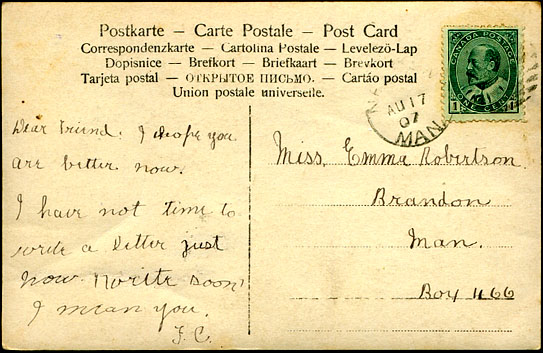 Postkarte – Carte Postale – Post Card
Correspondenzkarte — Cartolina Postale — Levelező-Lap
Dopisnice — Brefkort — Briefkaart — Brevkort
Tarjeta postal — ОТКРЫТОЕ ПИСЬМО. — Cartão postal
Union postale universelle.
CANADA POSTAGE
1 ONE CENT 1
AU 17
07
MAN
Dear Friend. I hope you
are better now.
I have not time to
write a letter just
now. Write soon
I mean you.
F.C.
Miss. Emma Robertson.
Brandon
Man.
Box 466